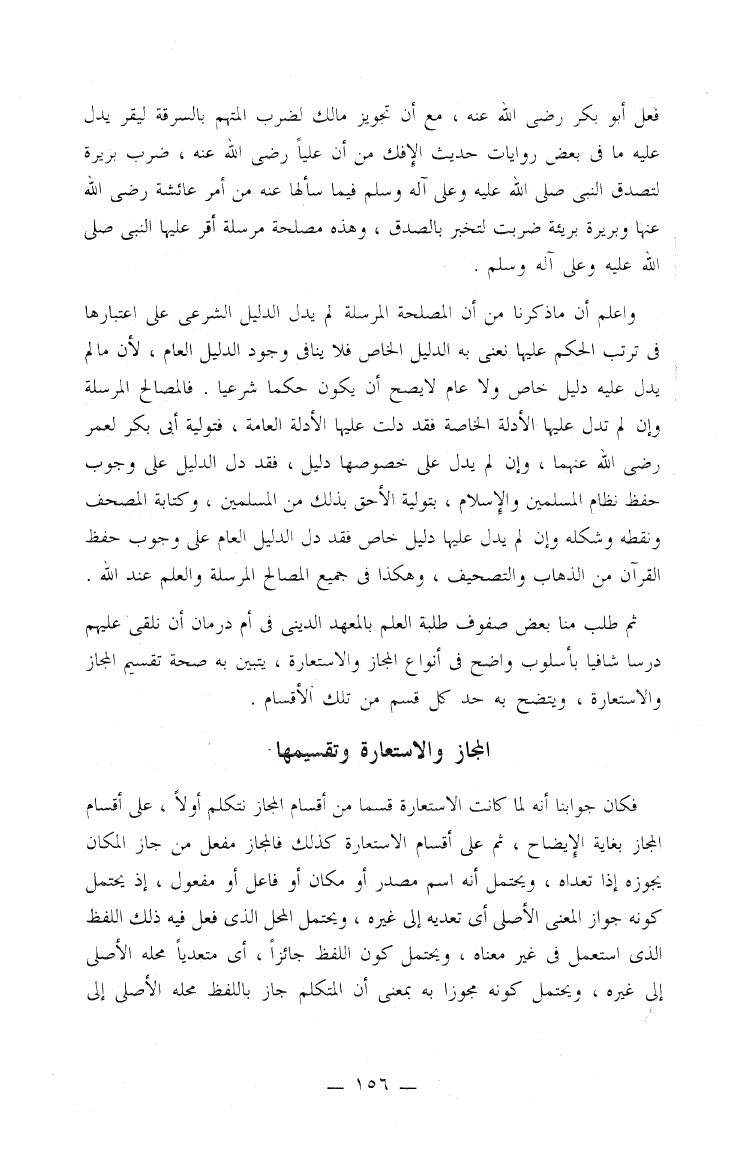 فعل أبو بكر رضى الله عنه ، مع أن تجويز مالك لضرب المتهم بالسرقة ليقر يدل
عليه ما فى بعض روايات حديث الإفك من أن علياً رضى الله عنه ، ضرب بريرة
لتصدق النبى صلى الله عليه وعلى آله وسلم فيما سألها عنه من أمر عائشة رضى الله
عنها وبريرة بريئة ضربت لتخبر بالصدق ، وهذه مصلحة مرسلة أقر عليها النبى صلى
الله عليه وعلى آله وسلم .
واعلم أن ماذكرنا من أن المصلحة المرسلة لم يدل الدليل الشرعى على اعتبارها
فى ترتب الحكم عليها نعنى به الدليل الخاص فلا ينافى وجود الدليل العام ، لأن مالم
يدل عليه دليل خاص ولا عام لايصح أن يكون حكما شرعيا . فالمصالح المرسلة
وإن لم تدل عليها الأدلة الخاصة فقد دلت عليها الأدلة العامة ، فتولية أبى بكر لعمر
رضى الله عنهما ، وإن لم يدل على خصوصها دليل ، فقد دل الدليل على وجوب
حفظ نظام المسلمين والإسلام ، بتولية الأحق بذلك من المسلمين ، وكتابة المصحف
ونقطه وشكله وإن لم يدل عليها دليل خاص فقد دل الدليل العام على وجوب حفظ
القرآن من الذهاب والتصحيف ، وهكذا فى جميع المصالح المرسلة والعلم عند الله .
ثم طلب منا بعض صفوف طلبة العلم بالمعهد الدينى فى أم درمان أن نلقى عليهم
درسا شافيا بأسلوب واضح فى أنواع المجاز والاستعارة ، يتبين به صحة تقسيم المجاز
والاستعارة ، ويتضح به حد كل قسم من تلك الأقسام .
المجاز والاستعارة وتقسيمها
فكان جوابنا أنه لما كانت الاستعارة قسما من أقسام المجاز نتكلم أولاً ، على أقسام
المجاز بغاية الإيضاح ، ثم على أقسام الاستعارة كذلك فالمجاز مفعل من جاز المكان
يجوزه إذا تعداه ، ويحتمل أنه اسم مصدر أو مكان أو فاعل أو مفعول ، إذ يحتمل
كونه جواز المعنى الأصلى أى تعديه إلى غيره ، ويحتمل المحل الذى فعل فيه ذلك اللفظ
الذى استعمل فى غير معناه ، ويحتمل كون اللفظ جائزاً ، أى متعدياً محله الأصلى
إلى غيره ، ويحتمل كونه مجوزا به بمعنى أن المتكلم جاز باللفظ محله الأصلى إلى
— ١٥٦ —